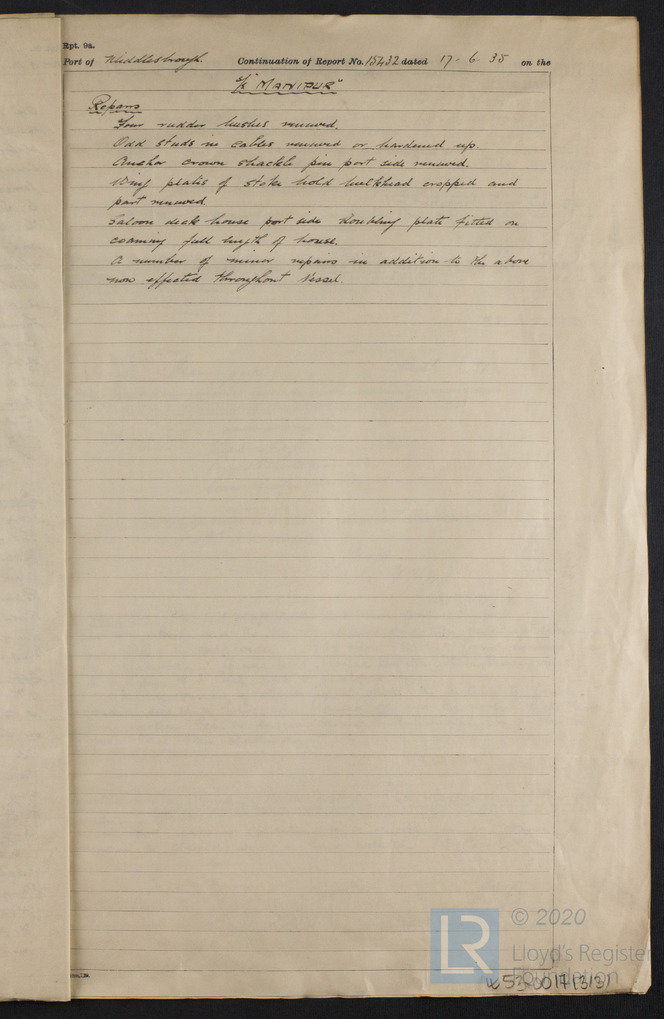 Rpt. 9a.
Port of Middlesbrough. Continuation of Report No. 15432 dated 17 - 6 - 35 on the
S/S "MANIPUR"
Repairs
Four rudder bushes renewed.
Odd studs in cables renewed or hardened up.
Anchor crown shackle pin port side renewed.
Wing plates of stoke hold bulkhead cropped and
part renewed
Saloon deck house port side doubling plate fitted on
coaming full length of house.
A number of minor repairs in addition to the above
now effected throughout vessel.
© 2020
LR
Lloyd's Register
Foundation
W53-0017(3/3)